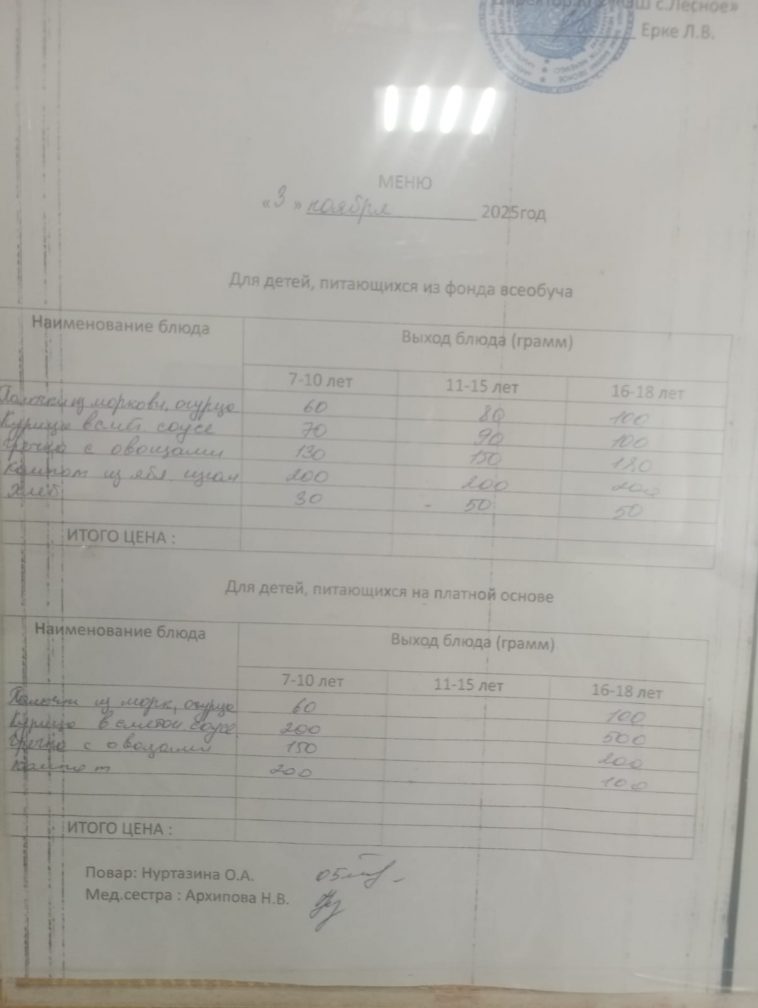 Ерке Л.В.
МЕНЮ
«3» ноября 2025год
Для детей, питающихся из фонда всеобуча
Наименование блюда Выход блюда (грамм)
7-10 лет 11-15 лет 16-18 лет
Палочки из моркови, огурца 60 80 100
Курица в смет. соусе 70 90 100
Гречка с овощами 130 150 180
Компот из ябл, изюм 200 200 200
Хлеб 30 50 50
ИТОГО ЦЕНА :
Для детей, питающихся на платной основе
Наименование блюда Выход блюда (грамм)
7-10 лет 11-15 лет 16-18 лет
Палочки из морк, огурца 60 100
Курица в сметон. соусе 200 500
Гречка с овощами 150 200
Компот 200 100
ИТОГО ЦЕНА :
Повар: Нуртазина О.А.
Мед.сестра : Архипова Н.В.